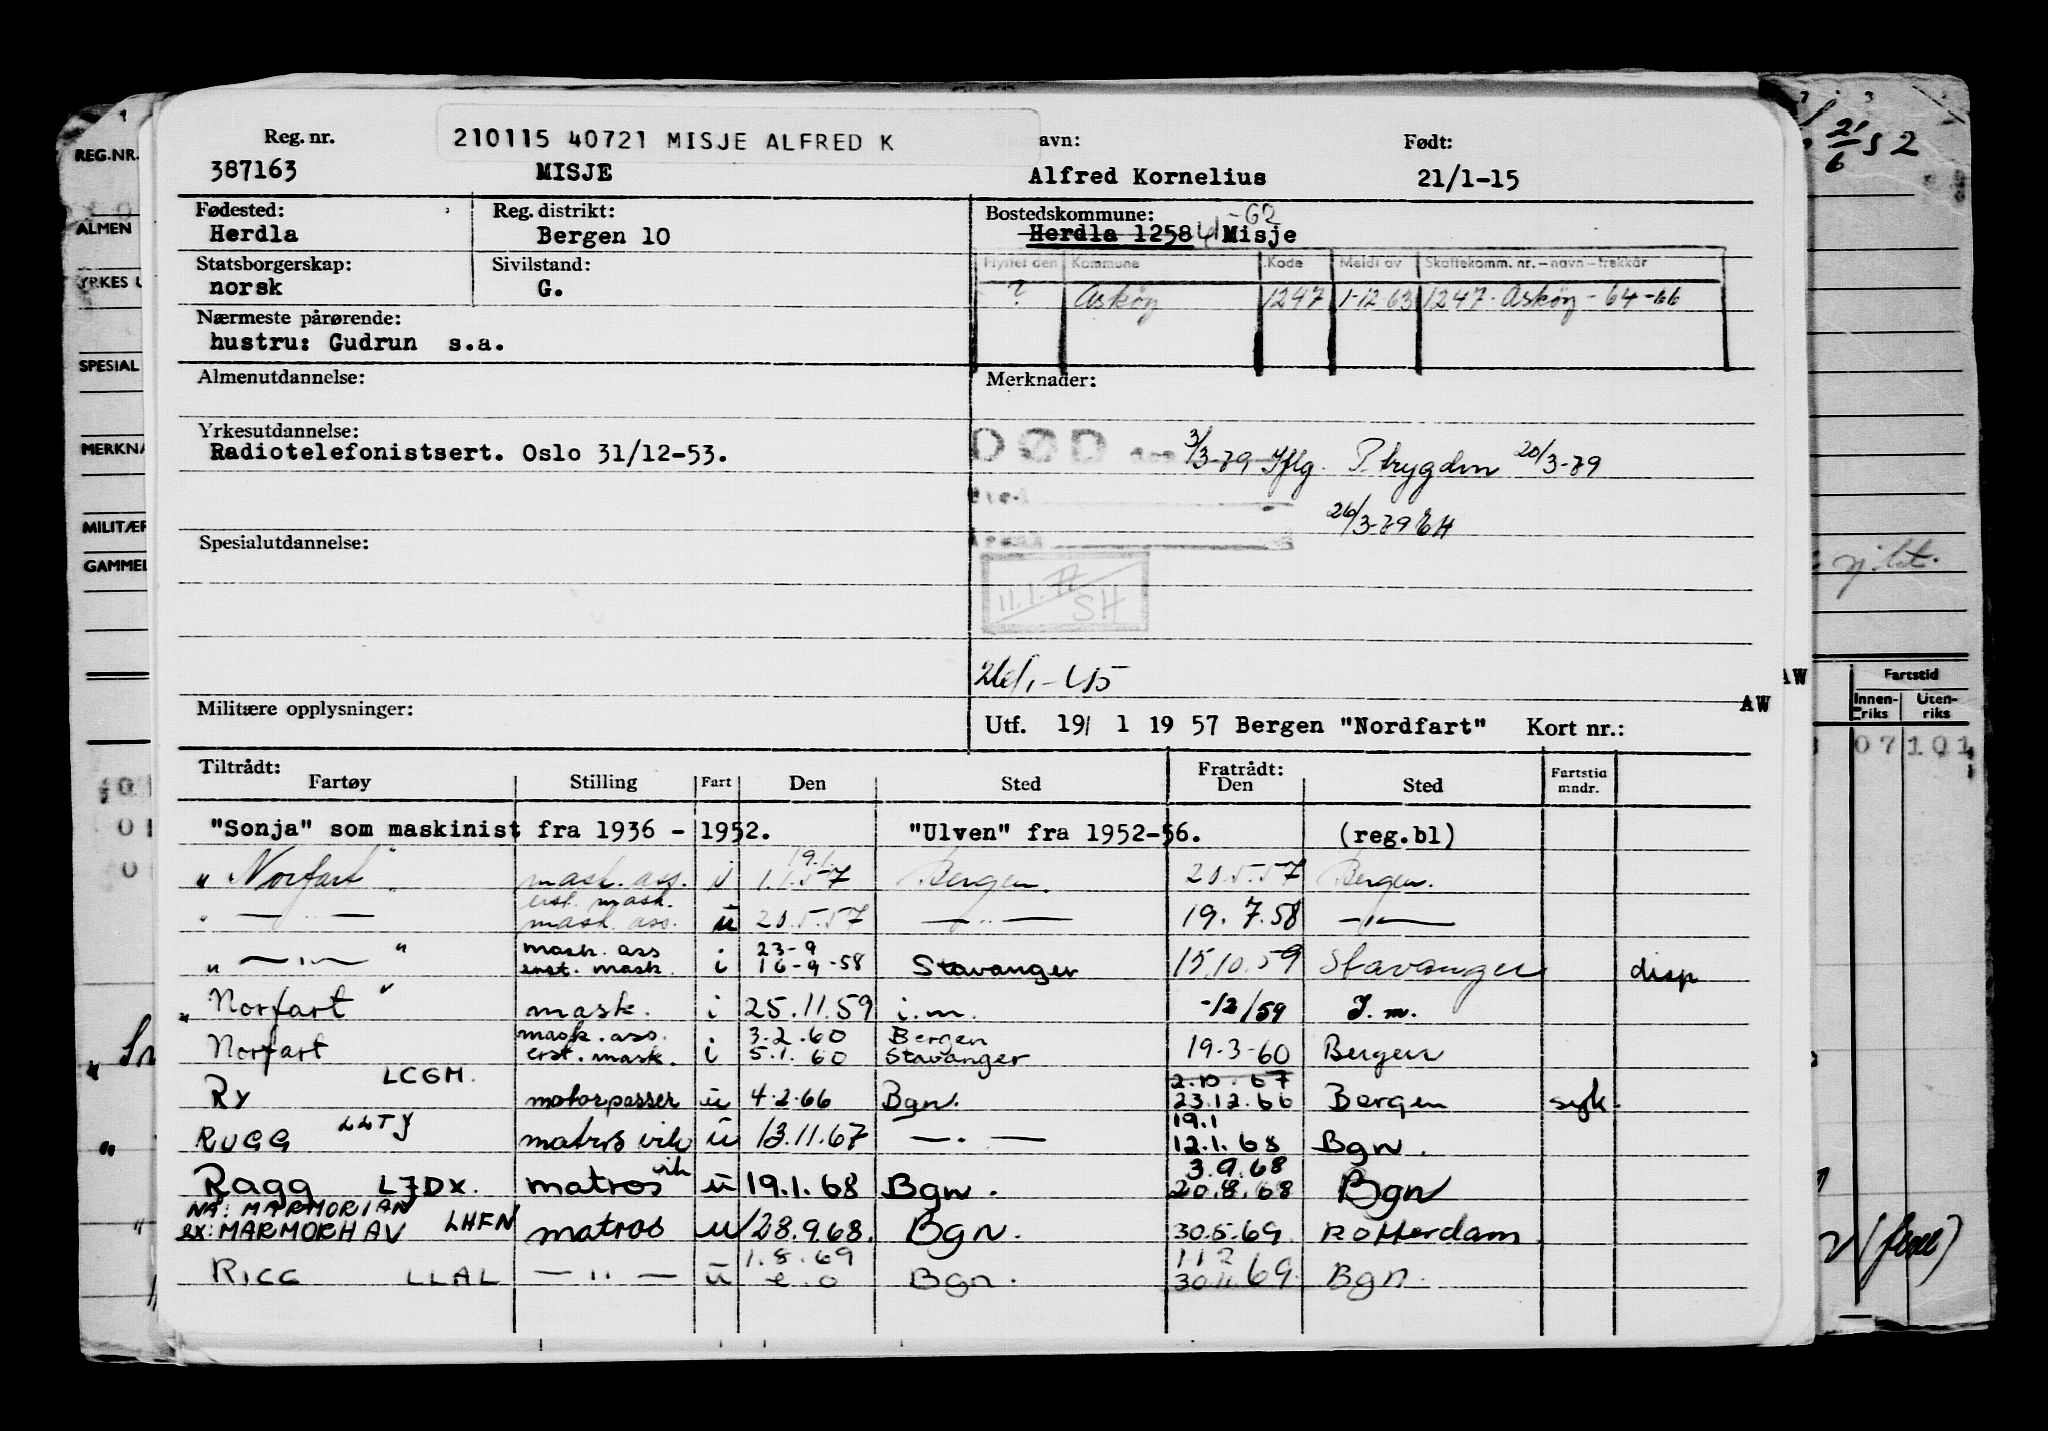 Reg. nr.
210115 40721 MISJE ALFRED K
avn:
Født:
387163
MISJE
Alfred Kornelius
21/1-15
Fødested:
Herdla
Reg. distrikt:
Bergen 10
Bostedskommune:
-62
Herdla 1258 Misje
Statsborgerskap:
norsk
Sivilstand:
G.
Flyttet den Kommune Kode Meldt av Skattekomm. nr. - navn - trekkår
? Askøy 1247 1-12 63 1247. Askøy - 64-66
Nærmeste pårørende:
hustru: Gudrun s.a.
Almenutdannelse:
Merknader:
Yrkesutdannelse:
Radiotelefonistsert. Oslo 31/12-53.
DØD den 3/3-79 Iflg. P.trygden 20/3-79
26/3-79 EH
Spesialutdannelse:
11.1.77
SH
Militære opplysninger:
AW
Utf. 19/ 1 19 57 Bergen "Nordfart" Kort nr.:
Tiltrådt:
Fartøy Stilling Fart Den Sted
Fratrådt:
Den Sted
Fartstid
mndr.
"Sonja" som maskinist fra 1936 - 1952. "Ulven" fra 1952-56. (reg.bl)
19.1.
" Norfart " mask. ass. i 1.1.57 Bergen. 20.5.57 Bergen.
erst. mask.
" — " — mask. ass. u 20.5.57 — " — 19.7.58 — " —
mask. ass 23-9
" — " — " erst. mask. i 16-9-58 Stavanger 15.10.59 Stavanger disp
" Norfart " mask. i 25.11.59 i.m. -12/59 I.m.
mask. ass. 3.2.60 Bergen
Norfart erst. mask. i 5.1.60 Stavanger 19-3-60 Bergen
LCGM. 2.10.67
Ry motorpasser u 4-2-66 Bgn. 23.12.66 Bergen syk.
LLTJ 19.1
RUGG matros vik u 13.11.67 — " — 12.1.68 Bgn.
vik 3.9.68
Ragg LJDX. matros u 19.1.68 Bgn. 20.8.68 Bgn
NÅ: MARMORIAN
ex: MARMORHAV LHFN matros u 28.9.68. Bgn. 30.5.69. Rotterdam.
1.8.69
RIGG LLAL — " — u Bgn. 30.11.69 Bgn.
REG.NR.
ALMEN
YRKES U
SPESIAL
MERKNA
MILITÆR
GAMMEL
21/6 52
AW
Fartstid
Innen-
riks
Uten-
riks
07 101